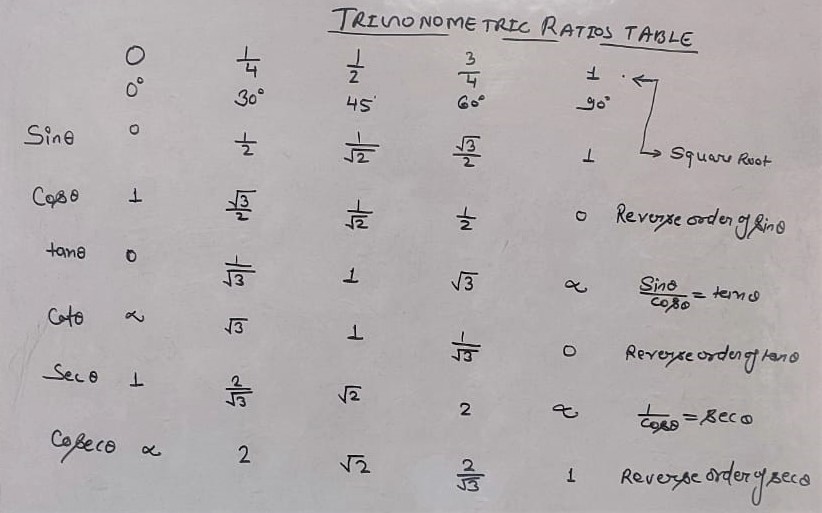 TRIGONOMETRIC RATIOS TABLE
0 1/4 1/2 3/4 1
0° 30° 45° 60° 90°
Sinθ 0 1/2 1/√2 √3/2 1 Square Root
Cosθ 1 √3/2 1/√2 1/2 0 Reverse order of sinθ
tanθ 0 1/√3 1 √3 ∝ Sinθ/Cosθ = tanθ
Cotθ ∝ √3 1 1/√3 0 Reverse order of tanθ
Secθ 1 2/√3 √2 2 ∝ 1/Cosθ = secθ
Cosecθ ∝ 2 √2 2/√3 1 Reverse order of secθ